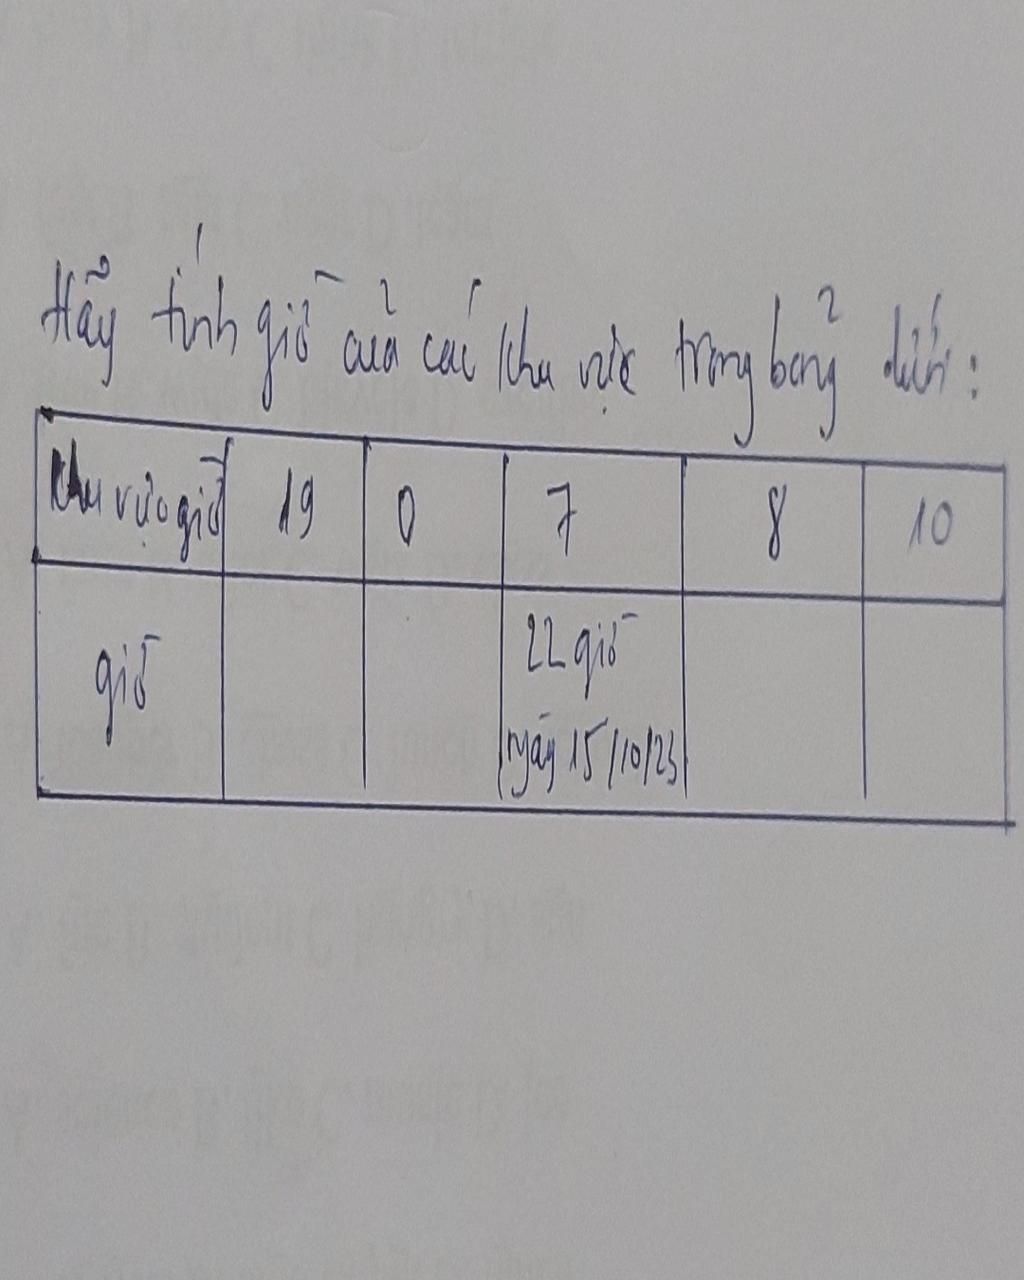 Hãy tính giờ của các khu vực trong bảng dưới:
Khu vực giờ 19 0 7 8 10
giờ 22 giờ
ngày 15/10/23